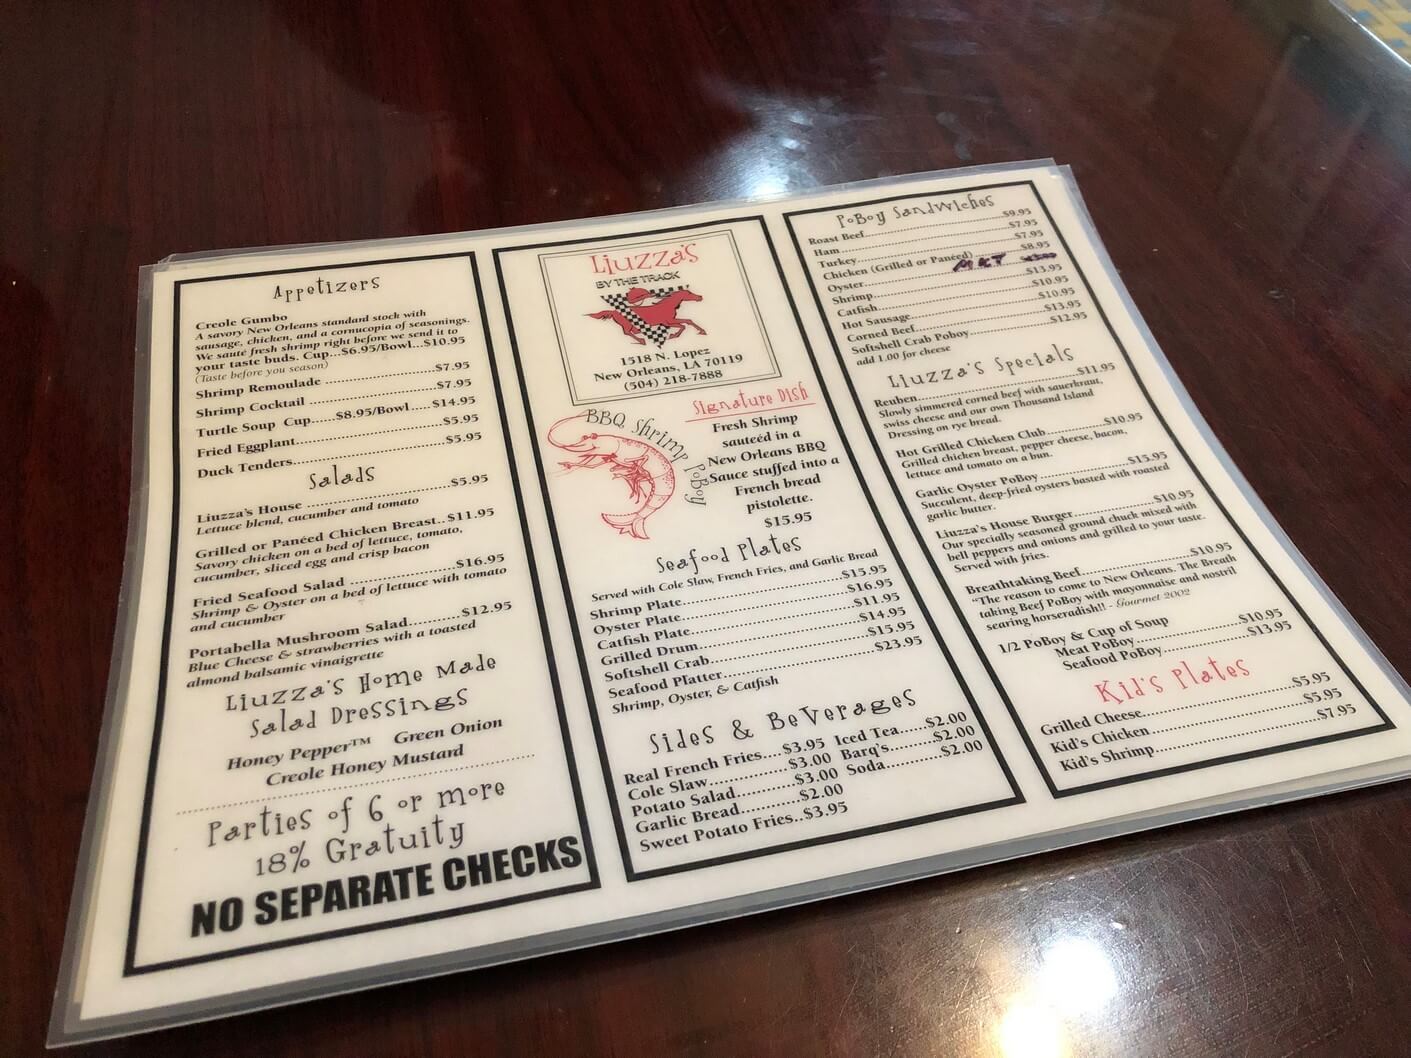 Appetizers
Creole Gumbo
A savory New Orleans standard stock with
sausage, chicken, and a cornucopia of seasonings.
We sauté fresh shrimp right before we send it to
your taste buds. Cup...$6.95/Bowl...$10.95
(Taste before you season)
Shrimp Remoulade ........................$7.95
Shrimp Cocktail ........................$7.95
Turtle Soup Cup......$8.95/Bowl.....$14.95
Fried Eggplant........................$5.95
Duck Tenders........................$5.95
Salads
Liuzza's House ........................$5.95
Lettuce blend, cucumber and tomato
Grilled or Panéed Chicken Breast..$11.95
Savory chicken on a bed of lettuce, tomato,
cucumber, sliced egg and crisp bacon
Fried Seafood Salad ..................$16.95
Shrimp & Oyster on a bed of lettuce with tomato
and cucumber
Portabella Mushroom Salad..........$12.95
Blue Cheese & strawberries with a toasted
almond balsamic vinaigrette
Liuzza's Home Made
Salad Dressings
Honey Pepper™ Green Onion
Creole Honey Mustard
Parties of 6 or more
18% Gratuity
NO SEPARATE CHECKS
Liuzza's
BY THE TRACK
1518 N. Lopez
New Orleans, LA 70119
(504) 218-7888
BBQ Shrimp PoBoy
Signature Dish
Fresh Shrimp
sauteéd in a
New Orleans BBQ
Sauce stuffed into a
French bread
pistolette.
$15.95
Seafood Plates
Served with Cole Slaw, French Fries, and Garlic Bread
Shrimp Plate........................$15.95
Oyster Plate........................$16.95
Catfish Plate........................$11.95
Grilled Drum........................$14.95
Softshell Crab........................$15.95
Seafood Platter........................$23.95
Shrimp, Oyster, & Catfish
Sides & Beverages
Real French Fries...$3.95 Iced Tea.....$2.00
Cole Slaw..............$3.00 Barq's........$2.00
Potato Salad..........$3.00 Soda..........$2.00
Garlic Bread..........$2.00
Sweet Potato Fries..$3.95
PoBoy Sandwiches
Roast Beef........................$9.95
Ham........................$7.95
Turkey........................$7.95
Chicken (Grilled or Panéed)..........$8.95
Oyster........................MKT
Shrimp........................$13.95
Catfish........................$10.95
Hot Sausage........................$10.95
Corned Beef........................$13.95
Softshell Crab Poboy..................$12.95
add 1.00 for cheese
Liuzza's Specials
Reuben........................$11.95
Slowly simmered corned beef with sauerkraut,
swiss cheese and our own Thousand Island
Dressing on rye bread.
Hot Grilled Chicken Club..............$10.95
Grilled chicken breast, pepper cheese, bacon,
lettuce and tomato on a bun.
Garlic Oyster PoBoy..................$15.95
Succulent, deep-fried oysters basted with roasted
garlic butter.
Liuzza's House Burger................$10.95
Our specially seasoned ground chuck mixed with
bell peppers and onions and grilled to your taste.
Served with fries.
Breathtaking Beef........................$10.95
"The reason to come to New Orleans. The Breath
taking Beef PoBoy with mayonnaise and nostril
searing horseradish!! - Gourmet 2002
1/2 PoBoy & Cup of Soup
Meat PoBoy........................$10.95
Seafood PoBoy........................$13.95
Kid's Plates
Grilled Cheese........................$5.95
Kid's Chicken........................$5.95
Kid's Shrimp........................$7.95